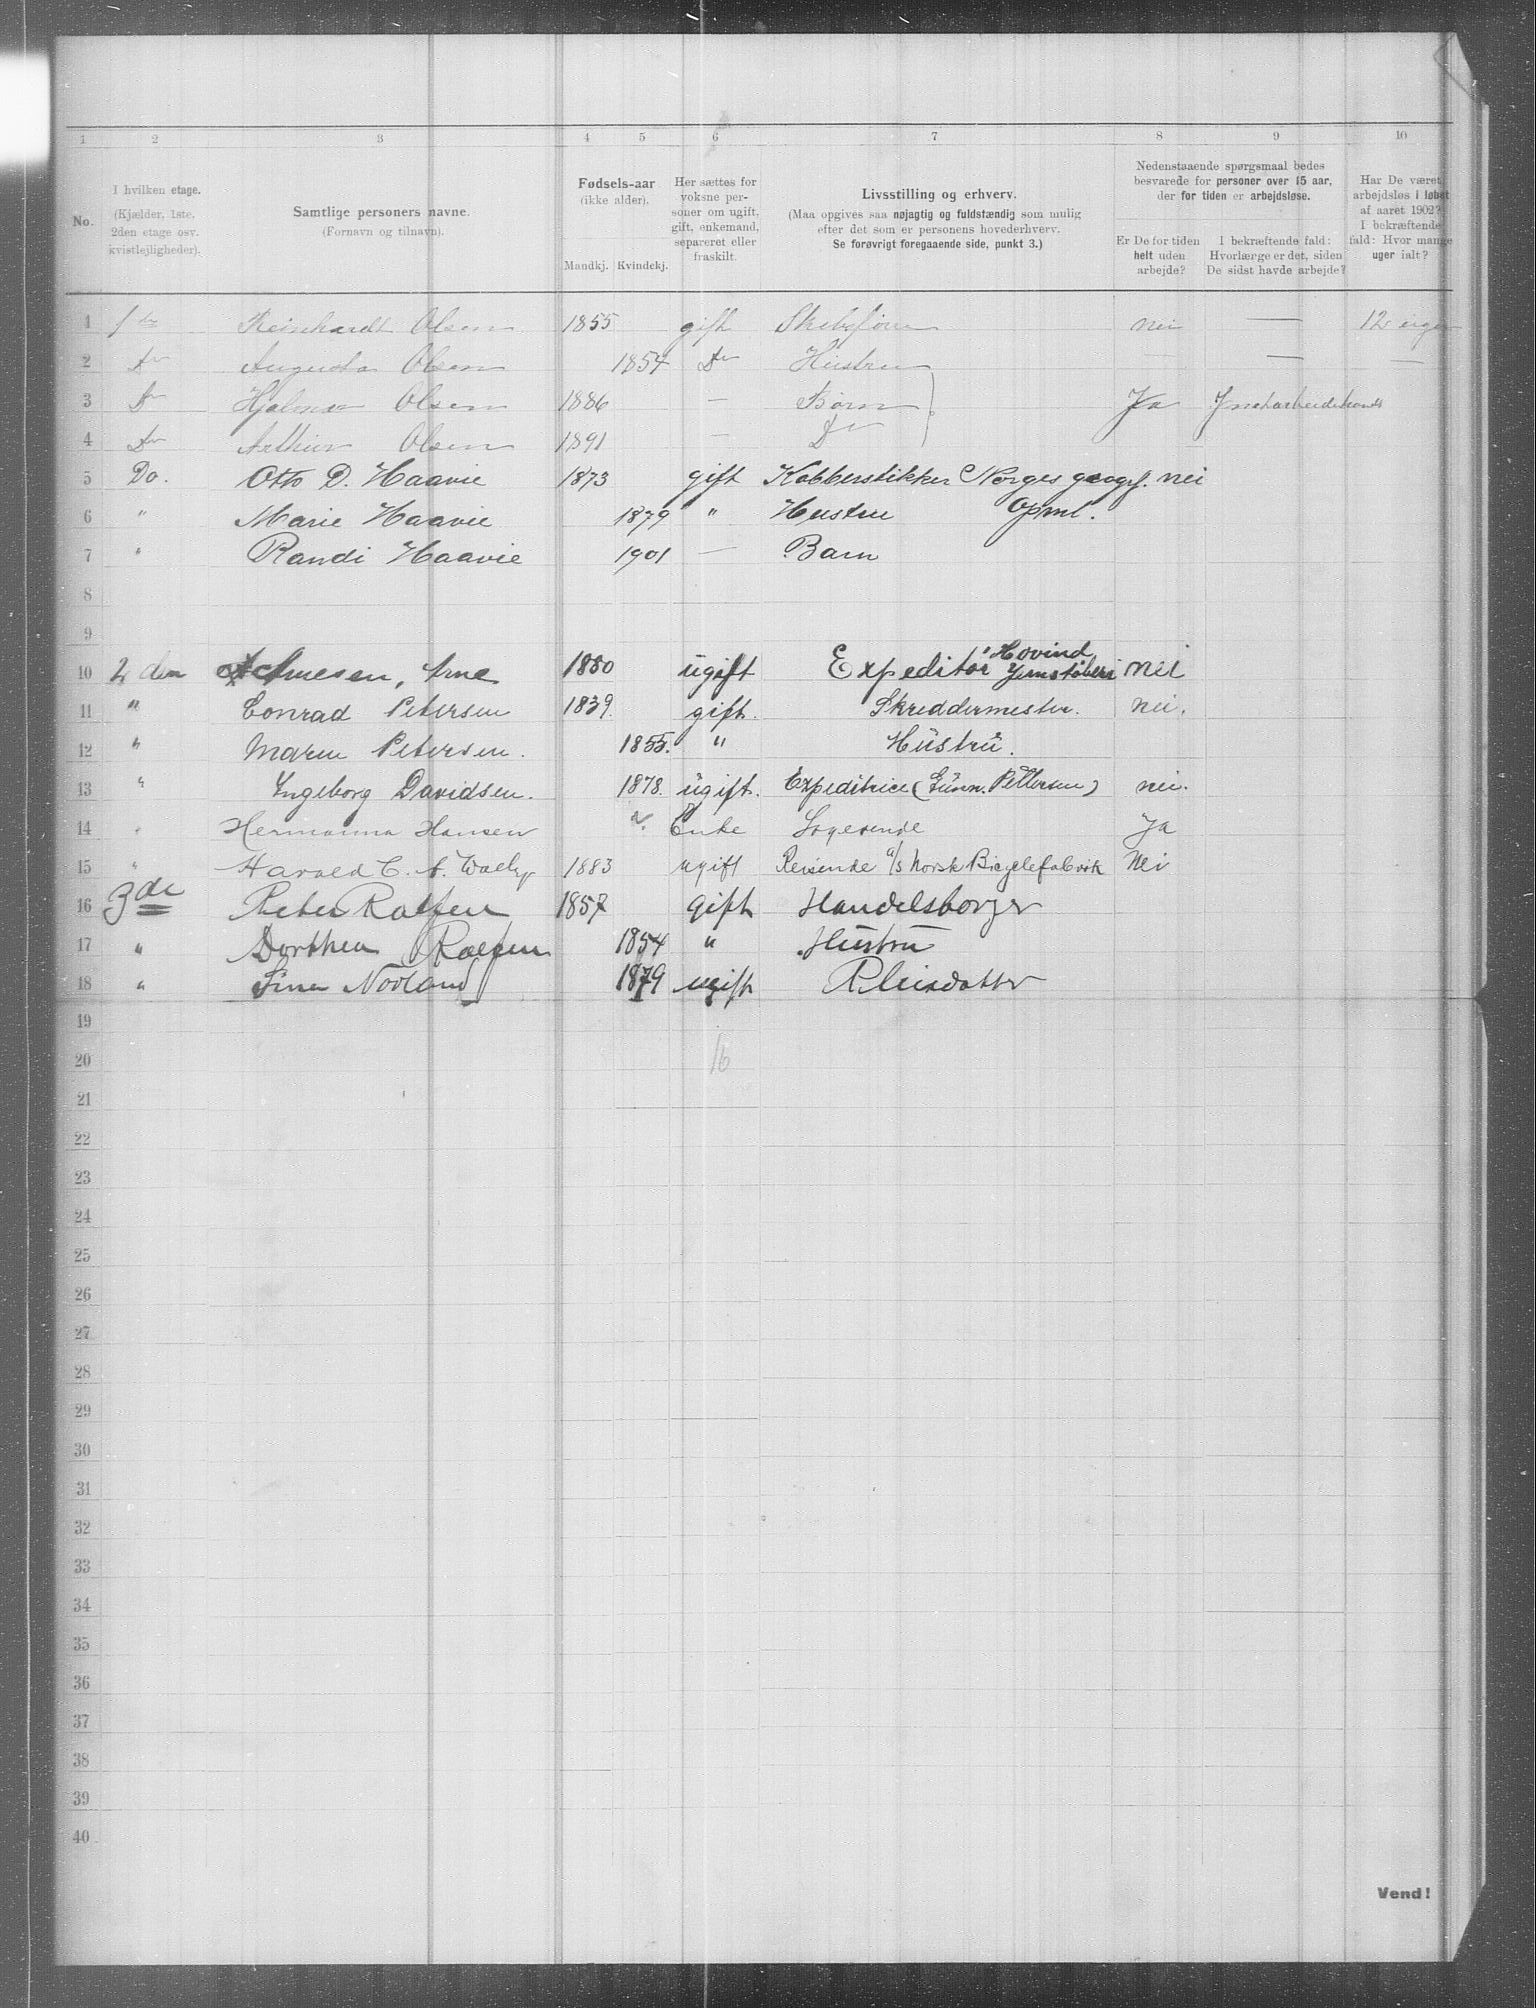 1 2 3 4 5 6 7 8 9 10
No.
I hvilken etage.
(Kjælder, 1ste, 2den etage osv. kvistlejligheder).
Samtlige personers navne.
(Fornavn og tilnavn).
Fødsels-aar
(ikke alder).
Mandkj. Kvindekj.
Her sættes for voksne personer om ugift, gift, enkemand, separeret eller fraskilt.
Livsstilling og erhverv.
(Maa opgives saa nøjagtig og fuldstændig som mulig
efter det som er personens hovederhverv.
Se forøvrigt foregaaende side, punkt 3.)
Nedenstaaende spørgsmaal bedes
besvarede for personer over 15 aar,
der for tiden er arbejdsløse.
Er De for tiden helt uden arbejde?
I bekræftende fald: Hvorlænge er det, siden De sidst havde arbejde?
Har De været arbejdsløs i løbet af aaret 1902? I bekræftende fald: Hvor mange uger ialt?
1 Reinhardt Olsen 1855 gift nei — 12
2 Do Augusta Olsen 1854 Do Hustru — —
3 Do Hjalmar Olsen 1886 — Børn Ja
4 Do Arthur Olsen 1891 — Do
5 Do. Otto D. Haavie 1873 gift Kobberstikker Norges geogr. nei
6 " Marie Haavie 1879 " Hustru Opml.
7 " Randi Haavie 1901 — Barn
8
9
10 2 den Arnesen, Arne 1880 ugift Expeditør i Hovind Jernstøberi nei
11 " Conrad Petersen 1839. gift. Skreddermester. nei.
12 " Maren Petersen. 1855. " Hustru.
13 " Ingeborg Davidsen. 1878. ugift. Expeditrice (Gunn. Pettersen) nei.
14 " Hermanna Hansen Enke Logerende Ja
15 " Harald C. A. 1883 ugift Reisende a/s Norsk Bicyclefabrik Nei
16 3de Peter Rolfsen 1857 gift Handelsborger
17 " Dorthea Rolfsen 1854 " Hustru
18 " Sina Nodland 1879 ugift Pleiedatter
19
20 16
21
22
23
24
25
26
27
28
29
30
31
32
33
34
35
36
37
38
39
40
Vend!